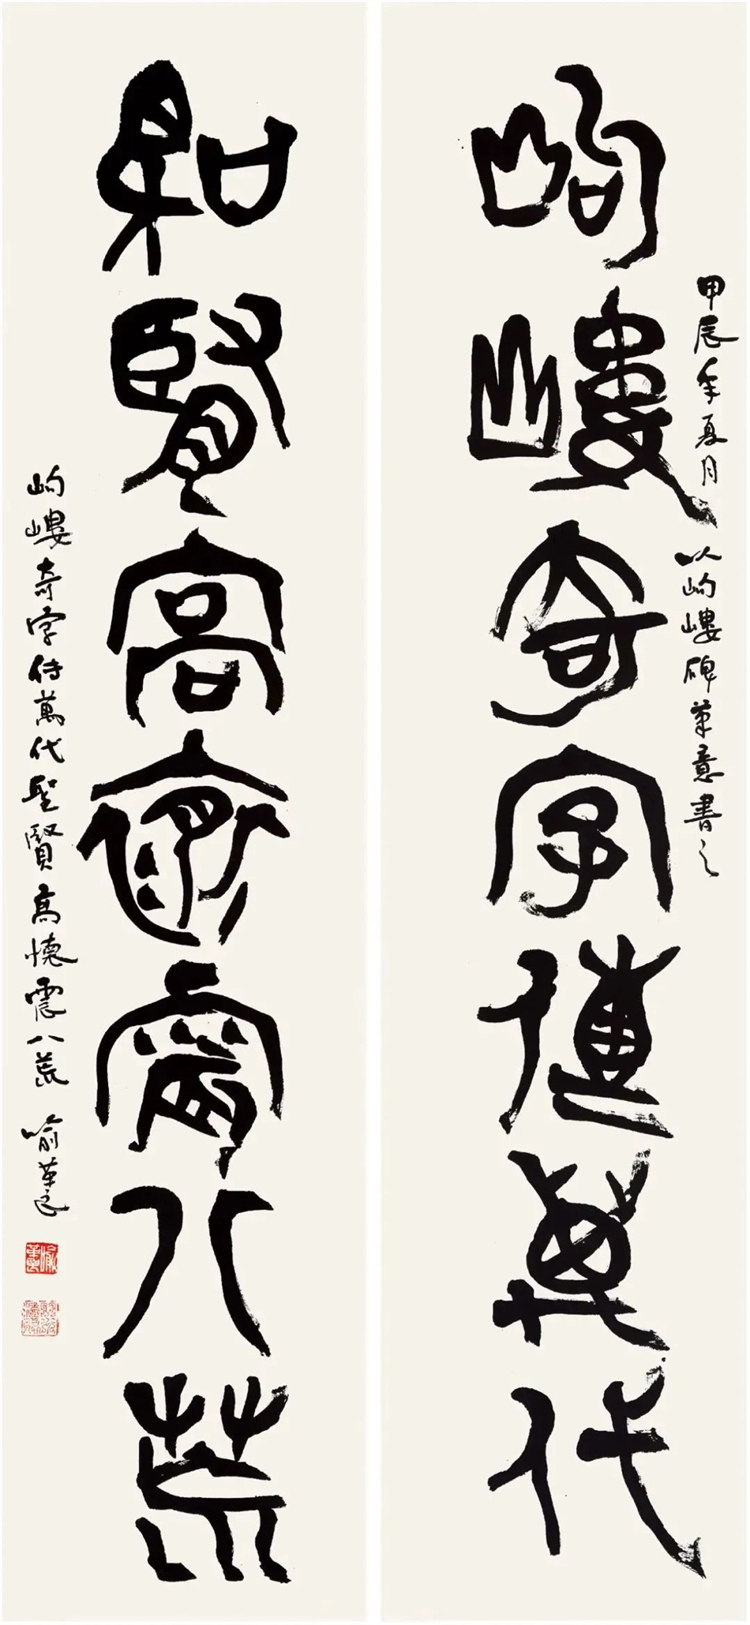 岣嶁奇字傳萬代
甲辰年夏月以岣嶁碑筆意書之
聖賢高懷震八荒
岣嶁奇字傳萬代聖賢高懷震八荒 喻革良